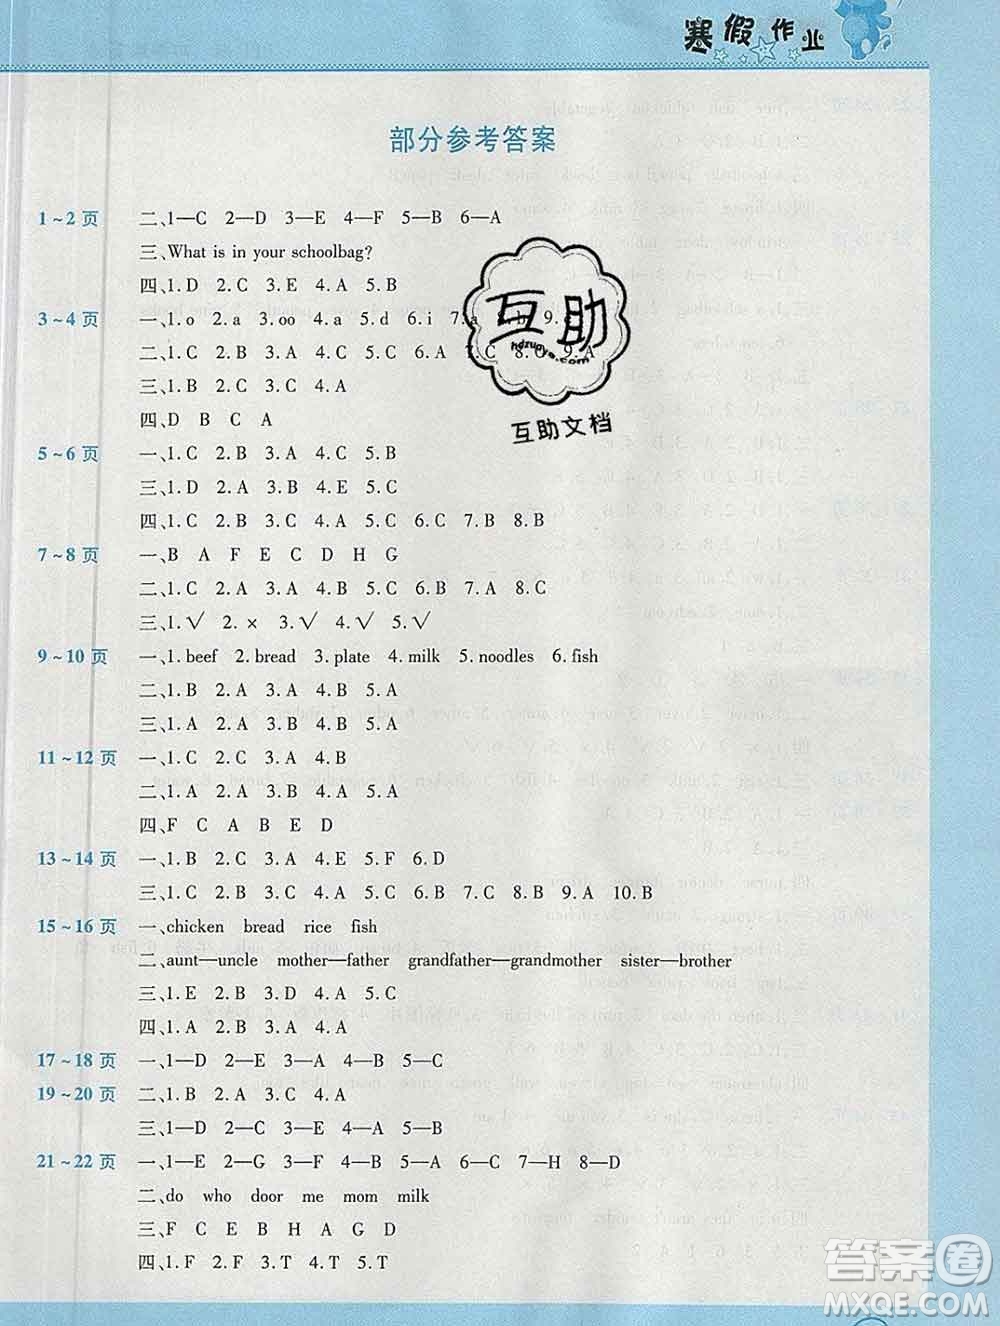 寒假作业
部分参考答案
1~2页 二、1—C 2—D 3—E 4—F 5—B 6—A
三、What is in your schoolbag?
四、1.D 2.C 3.E 4.A 5.B
3~4页 一、1.o 2.a 3.oo 4.a 5.d 6.i 7.a 8.h 9.e
二、1.C 2.B 3.A 4.C 5.C 6.A 7.C 8.C 9.A
三、1.B 2.C 3.C 4.A
四、D B C A
5~6页 一、1.C 2.B 3.A 4.C 5.B
三、1.D 2.C 3.B 4.E 5.A
四、1.C 2.B 3.C 4.A 5.C 6.C 7.B 8.B
7~8页 一、B A F E C D H G
二、1.C 2.B 3.A 4.C 5.C 6.B 7.A 8.C
三、1.√ 2.× 3.√ 4.√ 5.√
9~10页 一、1.beef 2.bread 3.plate 4.milk 5.noodles 6.fish
二、1.B 2.A 3.A 4.B 5.A
三、1.A 2.A 3.B 4.B 5.A
11~12页 一、1.C 2.C 3.A 4.B
二、1.A 2.A 3.B 4.A 5.A
四、F C A B E D
13~14页 一、1.B 2.C 3.A 4.E 5.F 6.D
三、1.C 2.A 3.B 4.C 5.A 6.C 7.B 8.B 9.A 10.B
15~16页 一、chicken bread rice fish
二、aunt—uncle mother—father grandfather—grandmother sister—brother
三、1.E 2.B 3.D 4.A 5.C
四、1.A 2.A 3.B 4.A
17~18页 一、1—D 2—E 3—A 4—B 5—C
19~20页 二、1.B 2.A 3.C 4.A
三、1—D 2—C 3—E 4—A 5—B
21~22页 一、1—E 2—G 3—F 4—A 5—B 6—C 7—H 8—D
二、do who door me mom milk
三、F C E B H A G D
四、1.F 2.F 3.T 4.T 5.T
互助
hdzuoye.com
互助文档
答案圈
MXQE.COM